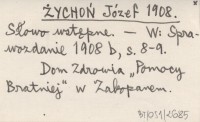 ŻYCHOŃ Józef 1908.
Słowo wstępne. — W: Spra-
wozdanie 1908 b, s. 8-9.
Dom Zdrowia „Pomocy
Bratniej" w Zakopanem.
BJ/OS1/2685